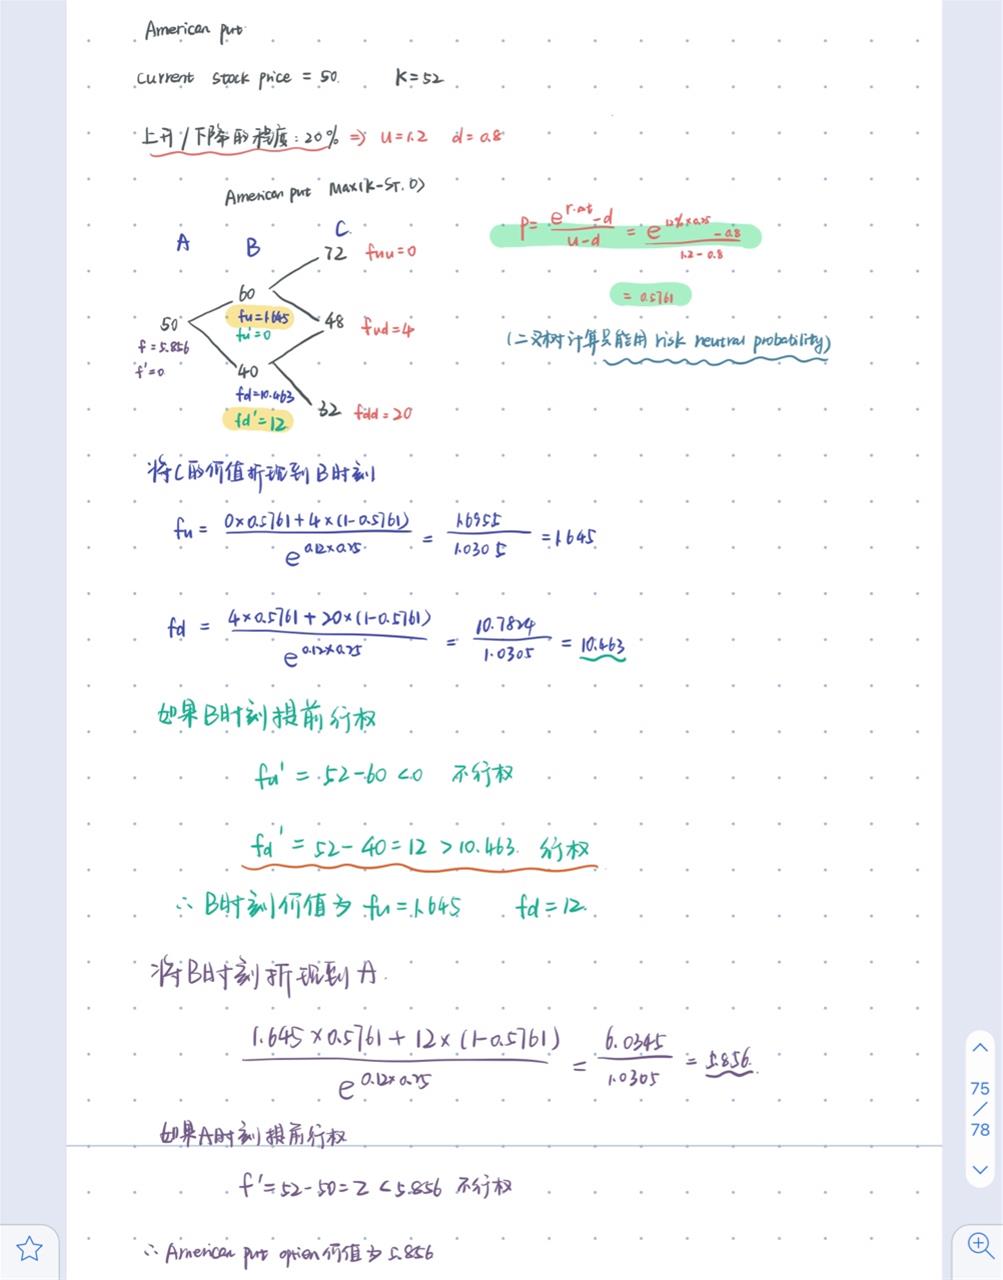 American put
current stock price = 50. K=52
上升/下降的程度:20% => u=1.2 d=0.8
American put Max(K-ST.0)
A B C
72 fuu=0
60
fu=1.645
fu'=0
50
f=5.856
f'=0
48 fud=4
40
fd=10.463
fd'=12
32 fdd=20
P= (e^(r·Δt) -d)/(u-d) = (e^(12%×0.25) -0.8)/(1.2-0.8)
= 0.5761
(二叉树计算只能用 risk neutral probability)
将C的价值折现到B时刻
fu = (0×0.5761+4×(1-0.5761))/e^(0.12×0.25) = 1.6955/1.0305 =1.645
fd = (4×0.5761+20×(1-0.5761))/e^(0.12×0.25) = 10.7824/1.0305 = 10.463
如果B时刻提前行权
fu' = 52-60<0 不行权
fd' = 52-40=12 >10.463. 行权
∴ B时刻价值为 fu=1.645 fd=12.
将B时刻折现到A.
(1.645×0.5761+12×(1-0.5761))/e^(0.12×0.25) = 6.0345/1.0305 = 5.856.
如果A时刻提前行权
f'=52-50=2 <5.856 不行权
∴ American put option价值为 5.856
75
/
78